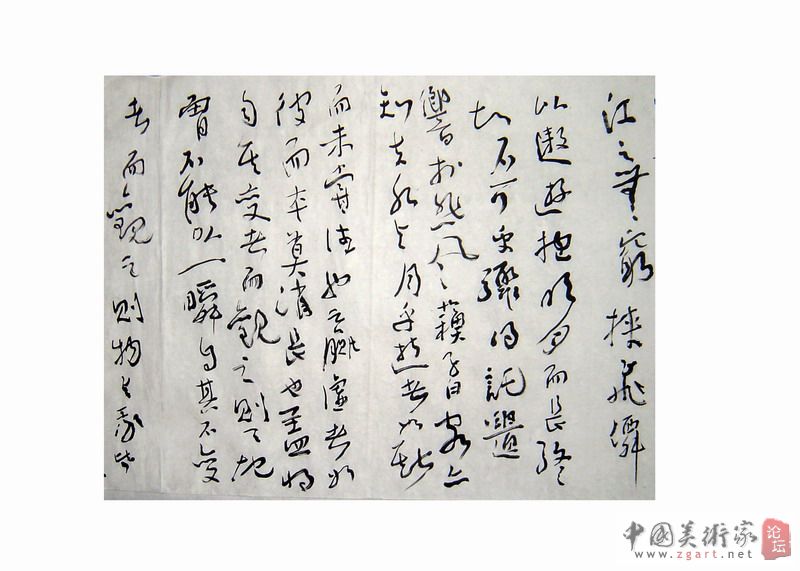 江之無窮挾飛僊
以遨遊抱明月而長終
知不可乎驟得託遺
響於悲風蘇子曰客亦
知夫水與月乎逝者如斯
而未嘗往也盈虛者如
彼而卒莫消長也蓋將
自其變者而觀之則天地
曾不能以一瞬自其不變
者而觀之則物與我皆
中國美術家
论坛
www.zgart.net